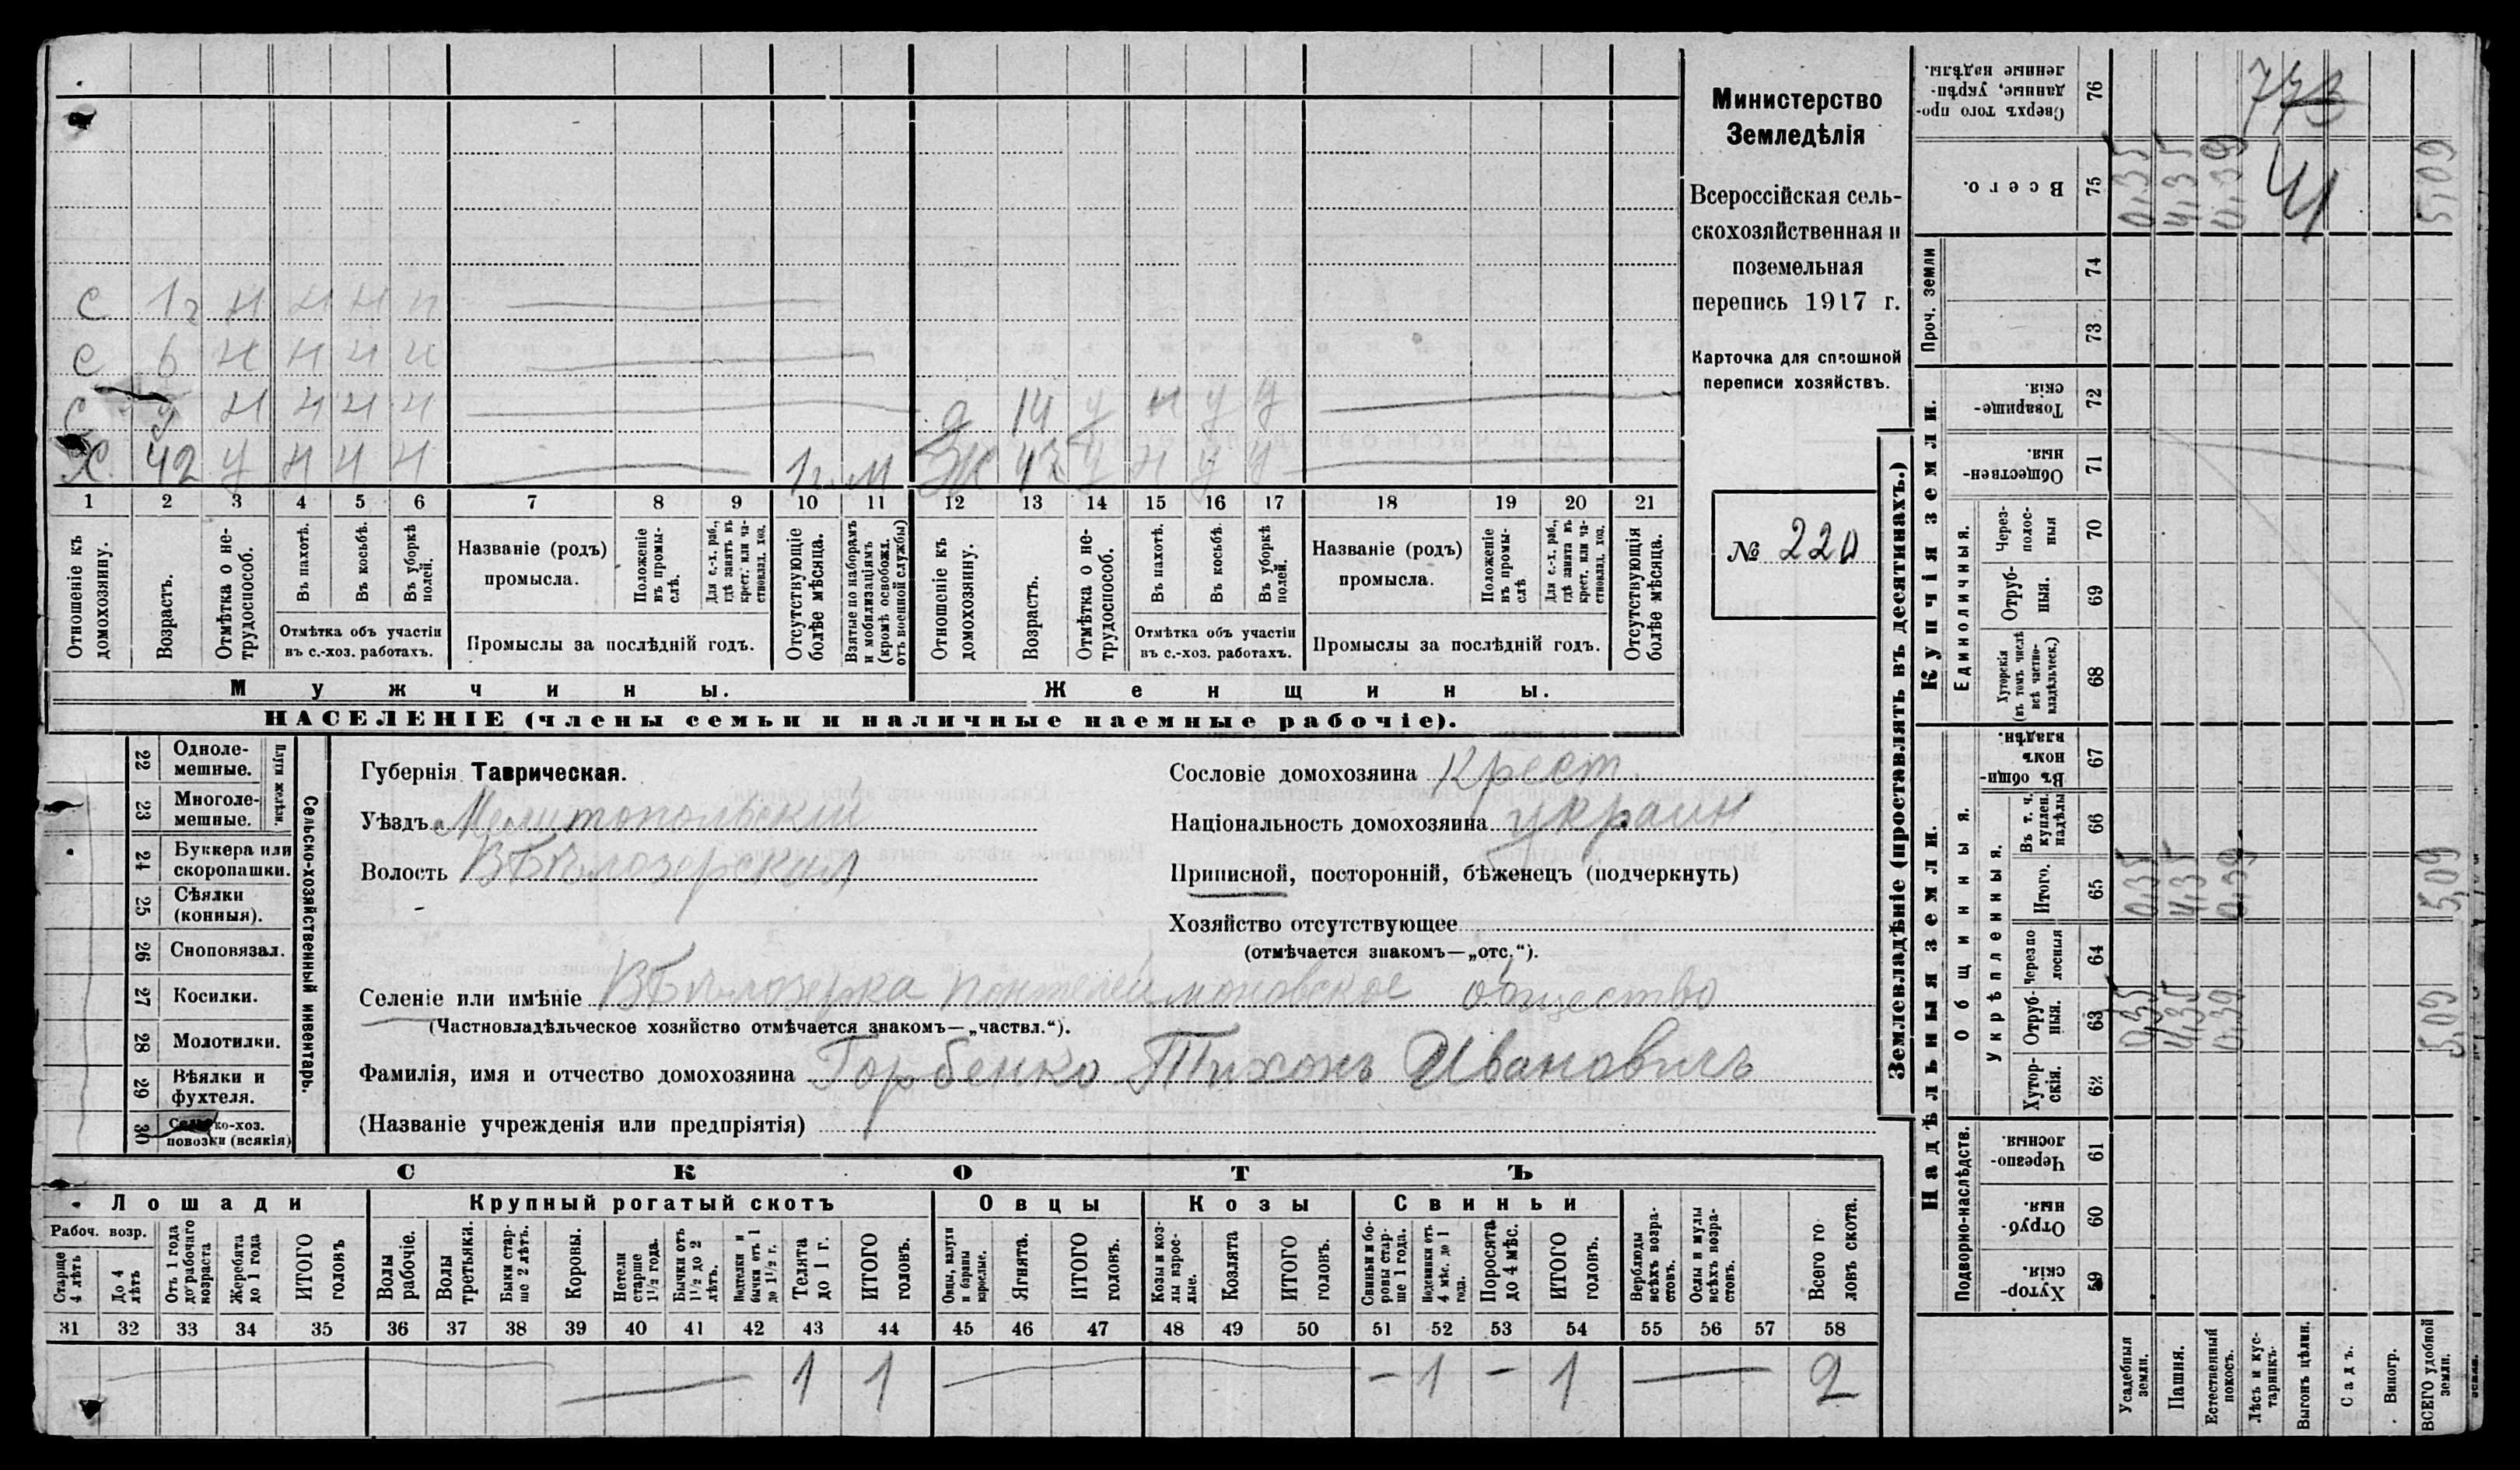 Министерство
Земледѣлія
Всероссійская сель-
скохозяйственная и
поземельная
перепись 1917 г.
Карточка для сплошной
переписи хозяйствъ.
№ 220
С 1г н н н н
С 6 н н н н
С 9 н н н н
Х 42 у н н н 1г. м
д 14 у н у у
Ж 42 у н у у
1 2 3 4 5 6 7 8 9 10 11 12 13 14 15 16 17 18 19 20 21
Отношеніе къ домохозяину.
Возрастъ.
Отмѣтка о не-трудоспособ.
Въ пахотѣ.
Въ косьбѣ.
Въ уборкѣ полей.
Отмѣтка объ участіи въ с.-хоз. работахъ.
Названіе (родъ) промысла.
Положеніе въ промы-слѣ.
Для с.-х. раб., гдѣ занятъ въ крест. или ча-стновлад. хоз.
Промыслы за послѣдній годъ.
Отсутствующіе болѣе мѣсяца.
Взятые по наборамъ и мобилизаціямъ (кромѣ освобожд. отъ военной службы)
Отношеніе къ домохозяину.
Возрастъ.
Отмѣтка о не-трудоспособ.
Въ пахотѣ.
Въ косьбѣ.
Въ уборкѣ полей.
Отмѣтка объ участіи въ с.-хоз. работахъ.
Названіе (родъ) промысла.
Положеніе въ промы-слѣ
Для с.-х. раб., гдѣ занята въ крест. или ча-стновлад. хоз.
Промыслы за послѣдній годъ.
Отсутствующія болѣе мѣсяца.
Мужчины.
Женщины.
НАСЕЛЕНІЕ (члены семьи и наличные наемные рабочіе).
22 Одноле-мешные.
23 Многоле-мешные.
Плуги желѣзн.
24 Буккера или скоропашки.
25 Сѣялки (конныя).
26 Сноповязал.
27 Косилки.
28 Молотилки.
29 Вѣялки и фухтеля.
30 Сельско-хоз. повозки (всякія)
Сельско-хозяйственный инвентарь.
Губернія Таврическая.
Уѣздъ Мелитопольскій
Волость ВБѣлозерская
Сословіе домохозяина Крест.
Національность домохозяина украин
Приписной, посторонній, бѣженецъ (подчеркнуть)
Хозяйство отсутствующее
(отмѣчается знакомъ—„отс.“).
Селеніе или имѣніе ВБѣлозерка Пантелеймоновское общество
(Частновладѣльческое хозяйство отмѣчается знакомъ—„частвл.“).
Фамилія, имя и отчество домохозяина Горбенко Тихонъ Ивановичъ
(Названіе учрежденія или предпріятія)
СКОТЪ
Лошади
Крупный рогатый скотъ
Овцы
Козы
Свиньи
Рабоч. возр.
Старще 4 лѣтъ
До 4 лѣтъ
Отъ 1 года до рабочаго возраста
Жеребята до 1 года
ИТОГО головъ
Волы рабочіе.
Волы третьяки.
Быки стар-ше 2 лѣтъ.
Коровы.
Нетели старше 1½ года.
Бычки отъ 1½ до 2 лѣтъ.
бычки отъ 1 до 1½ г.
Телята до 1 г.
ИТОГО головъ.
Овцы, валухи и бараны взрослые.
Ягнята.
ИТОГО головъ.
Козы и коз-лы взрос-лые.
Козлята
ИТОГО головъ.
Свиньи и бо-ровы стар-ше 1 года.
Подсвинки отъ 4 мѣс. до 1 года.
Поросята до 4 мѣс.
ИТОГО головъ.
Верблюды всѣхъ возра-стовъ.
Ослы и мулы всѣхъ возра-стовъ.
Всего го-ловъ скота.
31 32 33 34 35 36 37 38 39 40 41 42 43 44 45 46 47 48 49 50 51 52 53 54 55 56 57 58
1 1 – 1 – 1 — 2
Землевладѣніе (проставлять въ десятинахъ.)
Купчія земли.
Надѣльныя земли.
Сверхъ того про-данные, укрѣп-ленные надѣлы. 76
Всего. 75 0,35 4,35 0,39 5,09
773
41
Проч. земли 74 73
Товарище-скія. 72
Обществен-ныя. 71
Единоличныя.
Через-полос-ныя 70
Отруб-ныя. 69
Хуторскія (въ томъ числѣ всѣ частно-владѣльческ.) 68
Общинныя.
Въ общин-номъ владѣн. 67
Укрѣпленныя.
Въ т. ч. куплен. надѣлы 66
Итого. 65 0,35 4,35 0,39 5,09
Черезпо лосныя 64
Отруб-ныя. 63 0,35 4,35 0,39 5,09
Хутор-скія. 62
Подворно-наслѣдств.
Черезпо-лосныя. 61
Отруб-ныя 60
Хутор-скія. 59
Усадебныя земли.
Пашня.
Естественный покосъ.
Лѣсъ и кус-тарникъ.
Выгонъ цѣлин.
Садъ.
Виногр.
ВСЕГО удобной земли.